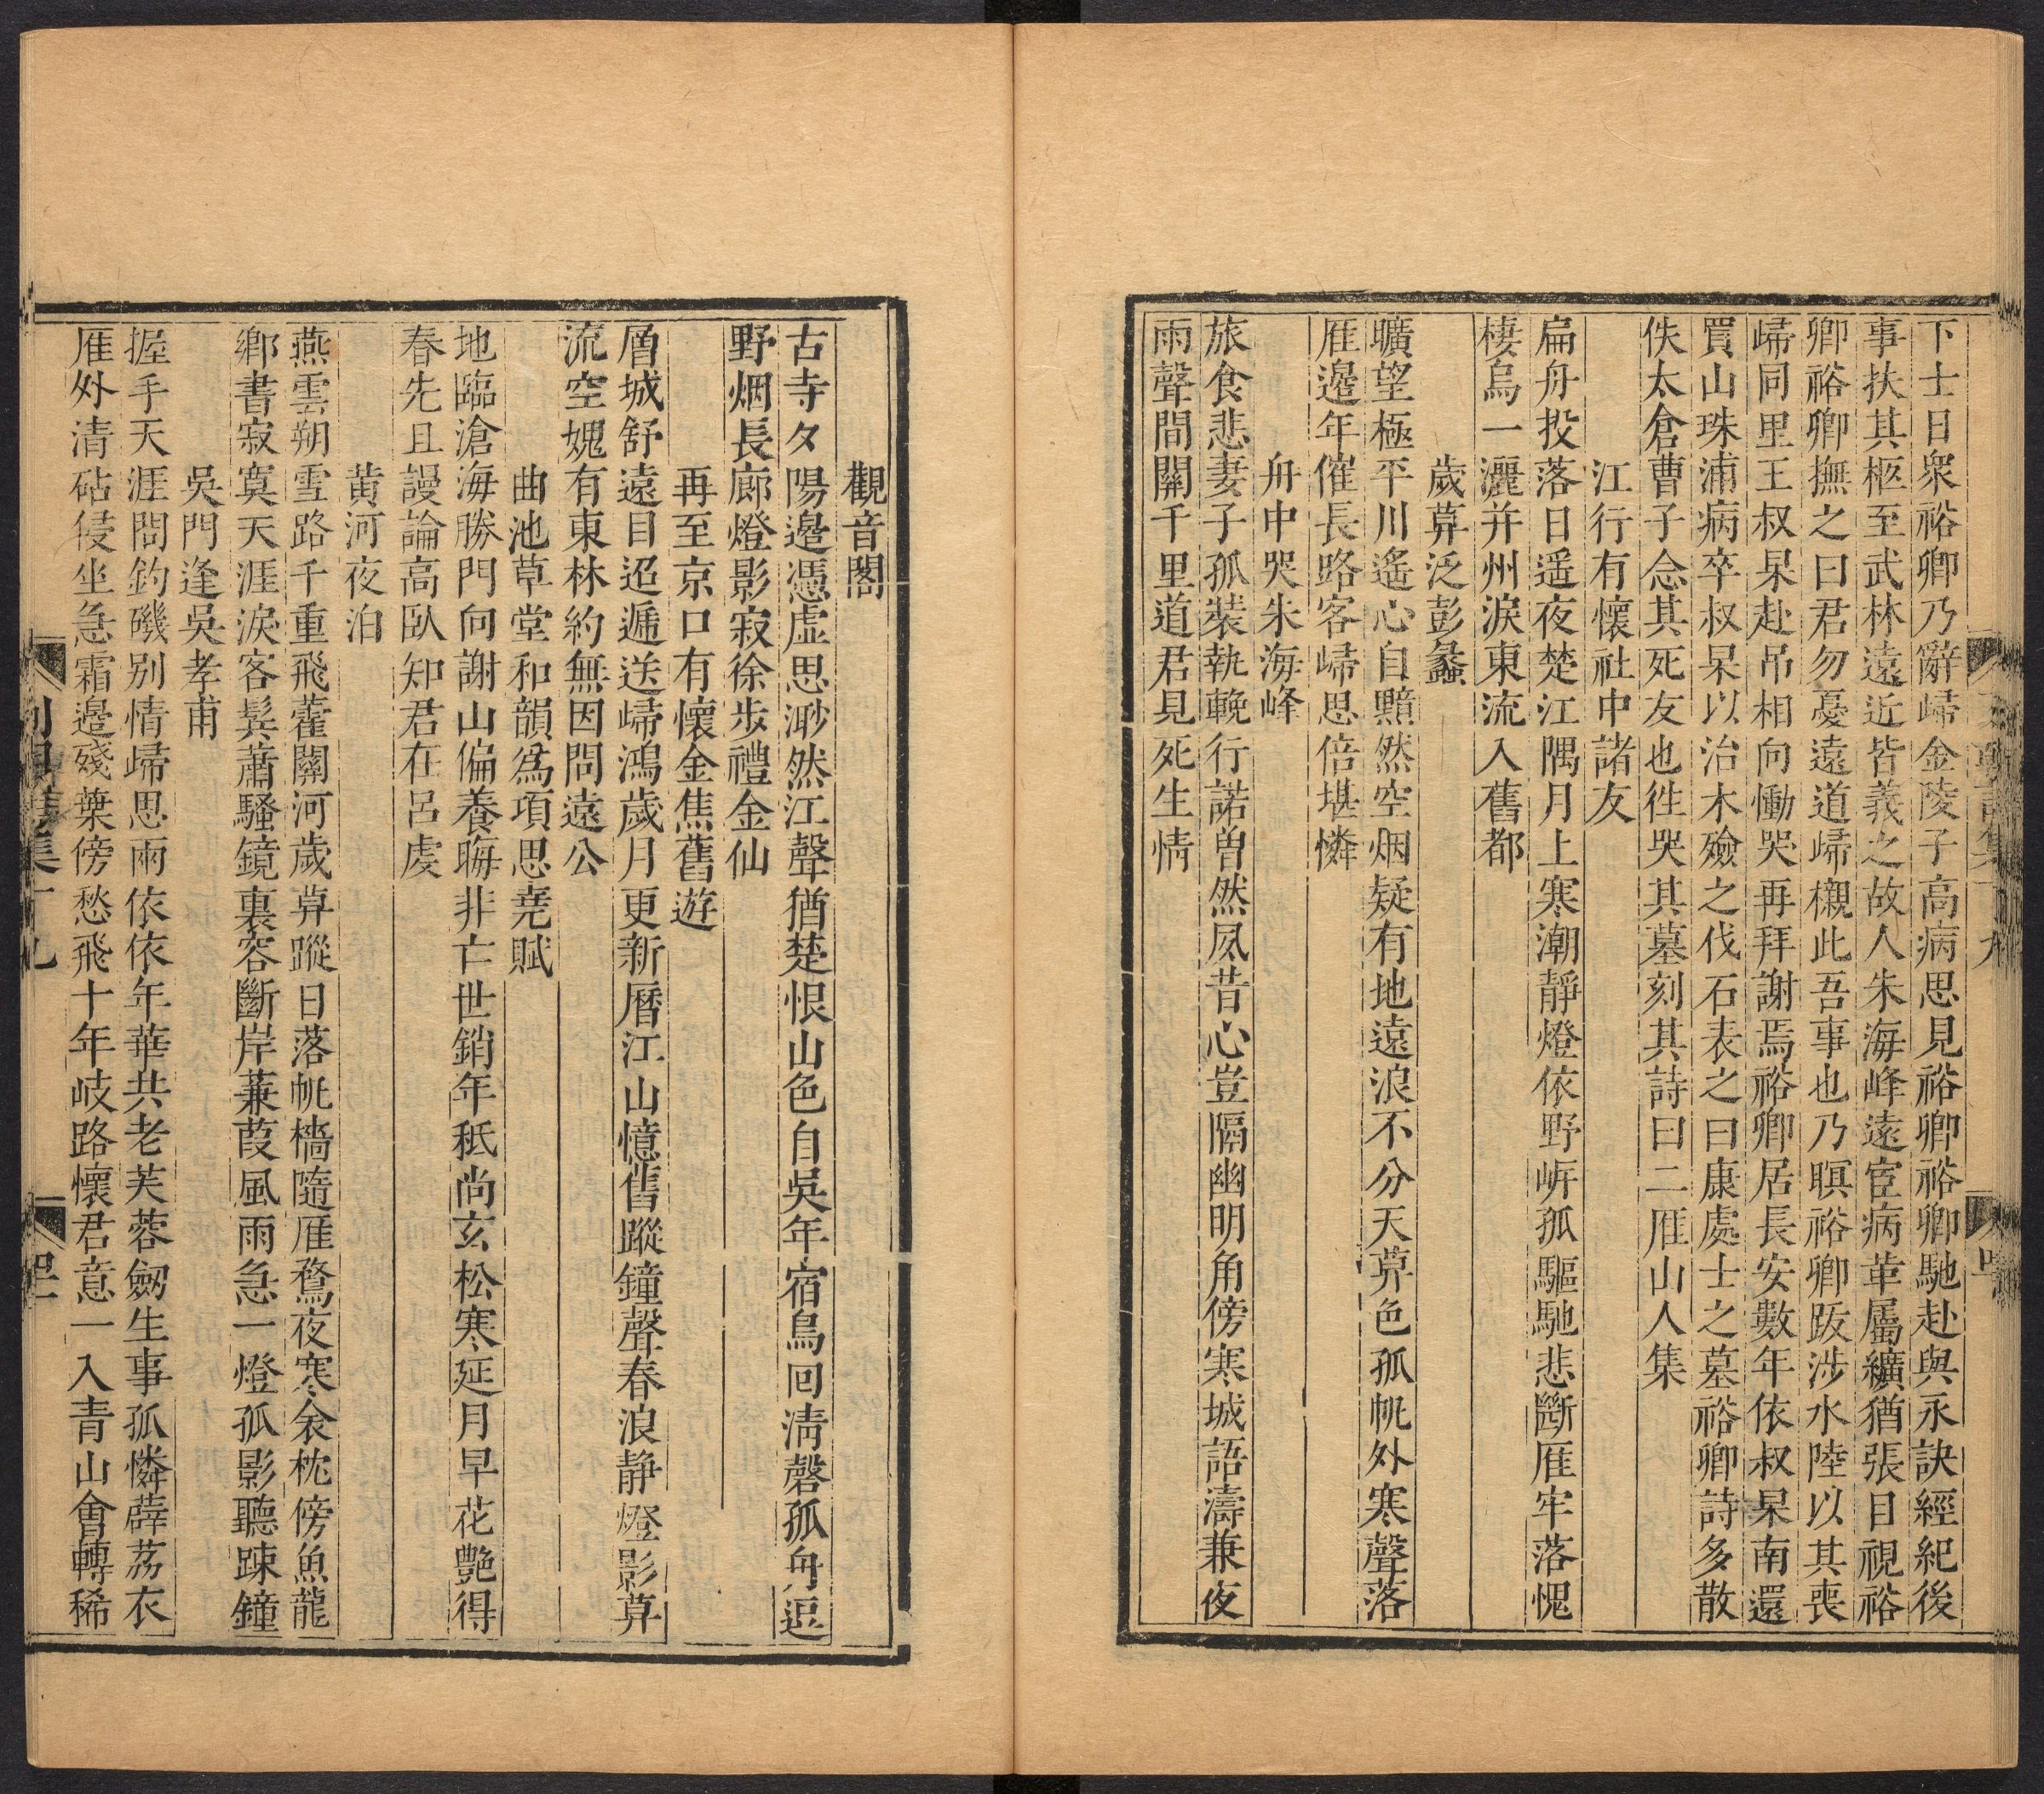 下士日衆裕卿乃辭歸金陵子高病思見裕卿裕卿馳赴與永訣經紀後
事扶其柩至武林遠近皆義之故人朱海峰遠宦病革屬纊猶張目視裕
卿裕卿撫之曰君勿憂遠道歸櫬此吾事也乃瞑裕卿跋涉水陸以其喪
歸同里王叔杲赴吊相向慟哭再拜謝焉裕卿居長安數年依叔杲南還
買山珠浦病卒叔杲以治木殮之伐石表之曰康處士之墓裕卿詩多散
佚太倉曹子念其死友也徃哭其墓刻其詩曰二雁山人集
江行有懷社中諸友
扁舟投落日遥夜楚江隅月上寒潮靜燈依野岍孤驅馳悲斷雁牢落愧
棲烏一灑并州淚東流入舊都
歲莫泛彭蠡
曠望極平川遙心自黯然空烟疑有地遠浪不分天莫色孤帆外寒聲落
雁邊年催長路客歸思倍堪憐
舟中哭朱海峰
旅食悲妻子孤裝執輓行諾曾然夙昔心豈隔幽明角傍寒城語濤兼夜
雨聲間關千里道君見死生情
列朝詩集丁九
觀音閣
古寺夕陽邊憑虛思渺然江聲猶楚恨山色自吳年宿鳥回清磬孤舟逗
野烟長廊燈影寂徐步禮金仙
再至京口有懷金焦舊遊
層城舒遠目迢遞送歸鴻歲月更新曆江山憶舊蹤鐘聲春浪靜燈影莫
流空媿有東林約無因問遠公
曲池草堂和韻爲項思堯賦
地臨滄海勝門向謝山偏養晦非亡世銷年秪尚玄松寒延月早花艷得
春先且謾論高臥知君在呂虔
黄河夜泊
燕雲朔雪路千重飛藿關河歲莫蹤日落帆檣隨雁鶩夜寒衾枕傍魚龍
鄉書寂寞天涯淚客髩蕭騷鏡裏容斷岸蒹葭風雨急一燈孤影聽踈鐘
吳門逢吳孝甫
握手天涯問釣磯别情歸思雨依依年華共老芙蓉劒生事孤憐薜荔衣
雁外清砧侵坐急霜邊殘葉傍愁飛十年岐路懷君意一入青山會轉稀